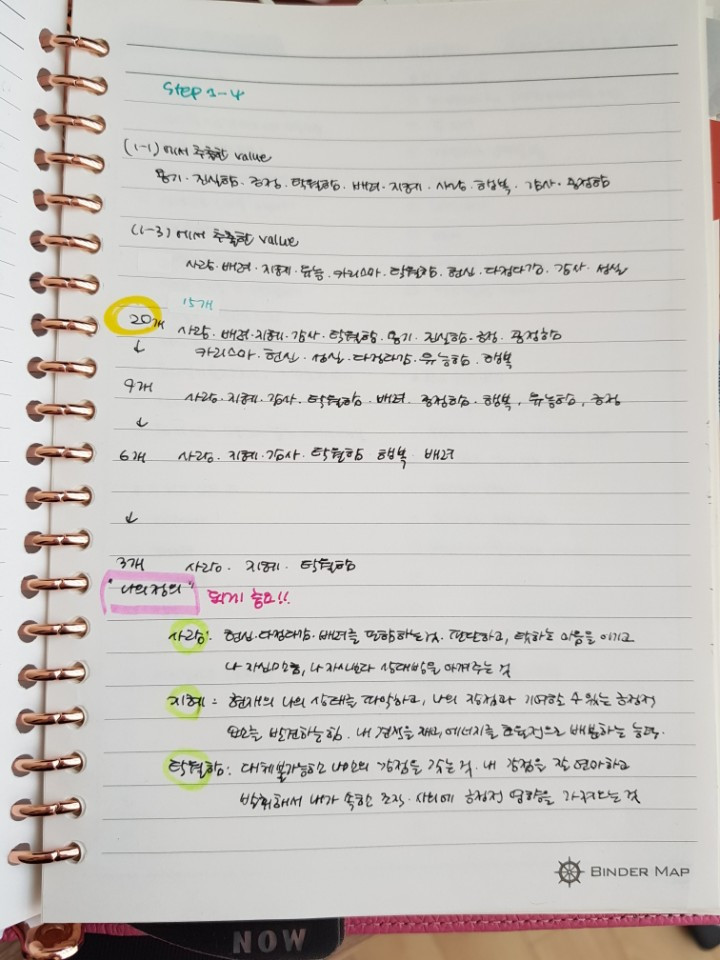 Step 1-4
(1-1)에서 추출한 value
용기·진실함·긍정·탁월함·배려·지혜·사랑·행복·감사·공정함
(1-3)에서 추출한 value
사랑·배려·지혜·유능·카리스마·탁월함·헌신·다정다감·감사·성실
15개
20개 사랑·배려·지혜·감사·탁월함·용기·진실함·긍정·공정함
↓ 카리스마·헌신·성실·다정다감·유능함·행복
9개 사랑·지혜·감사·탁월함·배려·공정함·행복, 유능함, 긍정
↓
6개 사랑·지혜·감사·탁월함 행복·배려
↓
3개 사랑·지혜·탁월함
"나의 정의" 되게 중요!!
사랑: 헌신·다정다감·배려를 포함하는 것. 판단하고, 탓하는 마음을 이기고
나 자신으로, 나 자신보다 상대방을 아껴주는 것
지혜: 현재의 나의 상태를 파악하고, 나의 장점과 기여할 수 있는 긍정적
요소를 발견하는 힘. 내 견적을 재고, 에너지를 효율적으로 배분하는 능력.
탁월함: 대체불가능한 나만의 강점을 갖는 것. 내 강점을 잘 연마하고
발휘해서 내가 속한 조직·사회에 긍정적 영향을 가져다는 것
BINDER MAP
NOW